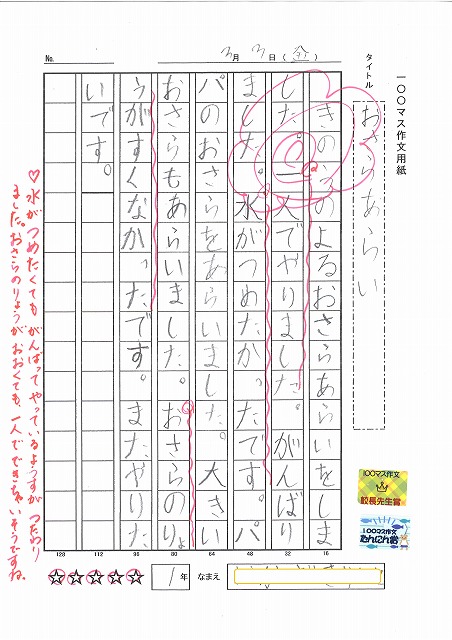 一〇〇マス作文用紙
タイトル
おさらあらい
No.
3月3日(金)
きのうのよるおさらあらいをしま
した。一人でやりました。がんばり
ました。水がつめたかったです。パ
パのおさらをあらいました。大きい
おさらもあらいました。おさらのりょ
うがすくなかったです。またやりた
いです。
♡水がつめたくてもがんばってやっているようすがつたわり
ました。おさらのりょうがおおくても、一人でできちゃいそうですね。
100マス作文
校長先生賞
100マス作文
たんにん賞
128 112 96 80 64 48 32 16
☆☆☆☆☆ 1年 なまえ